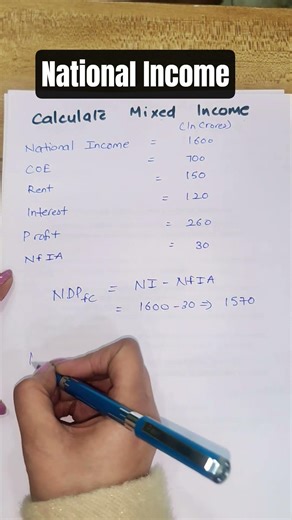 National Income
Calculate Mixed Income
(In Crores)
National Income = 1600
COE = 700
Rent = 150
Interest = 120
Profit = 260
NFIA = 30
NDPFC = NI - NFIA
= 1600 - 30 ⇒ 1570